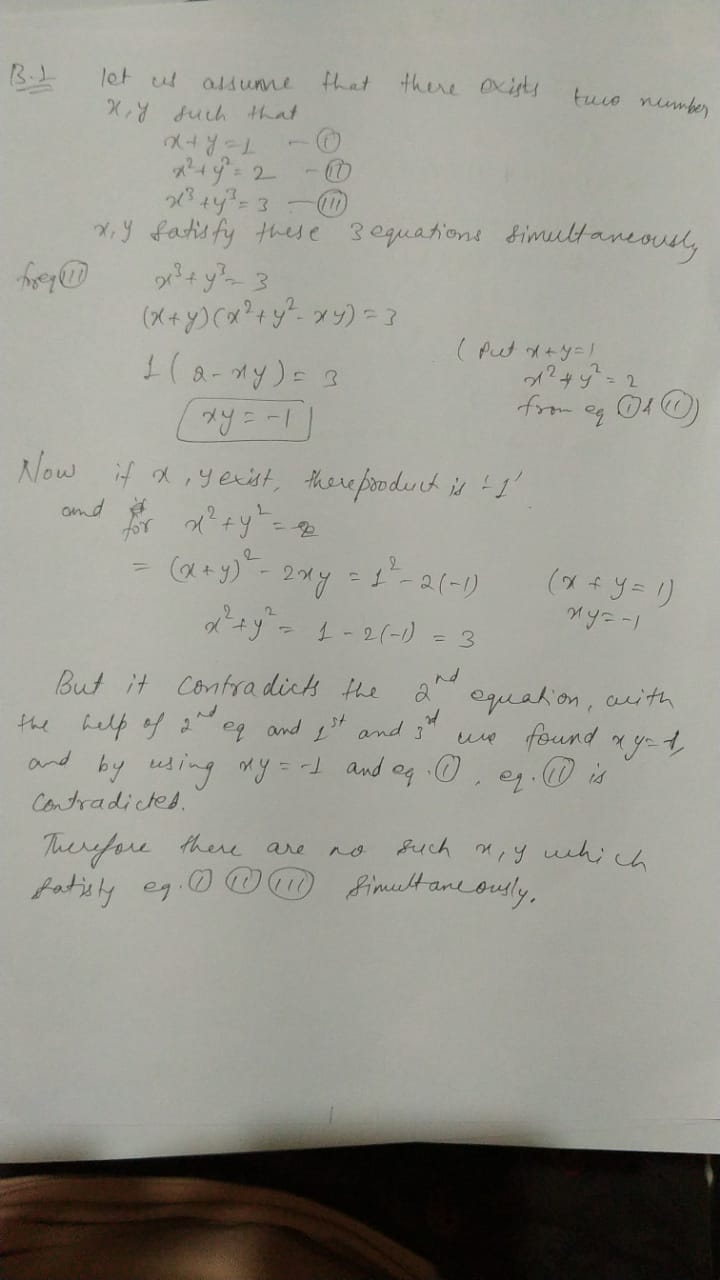 B.1 let us assume that there exists two number
x, y such that
x + y = 1 - (I)
x² + y² = 2 - (II)
x³ + y³ = 3 - (III)
x, y satisfy these 3 equations simultaneously
(III) x³ + y³ = 3
(x + y)(x² + y² - xy) = 3
1(2 - xy) = 3 (Put x + y = 1
x² + y² = 2
xy = -1 from eq (I) & (II))
Now if x, y exist, there product is '-1'
and for x² + y² = 2
= (x + y)² - 2xy = 1² - 2(-1) (x + y = 1)
x² + y² = 1 - 2(-1) = 3 xy = -1
But it contradicts the 2nd equation, with
the help of 2nd eq and 1st and 3rd we found xy = -1,
and by using xy = -1 and eq. (I), eq. (II) is
contradicted.
Therefore there are no such x, y which
satisfy eq. (I) (II) (III) simultaneously.